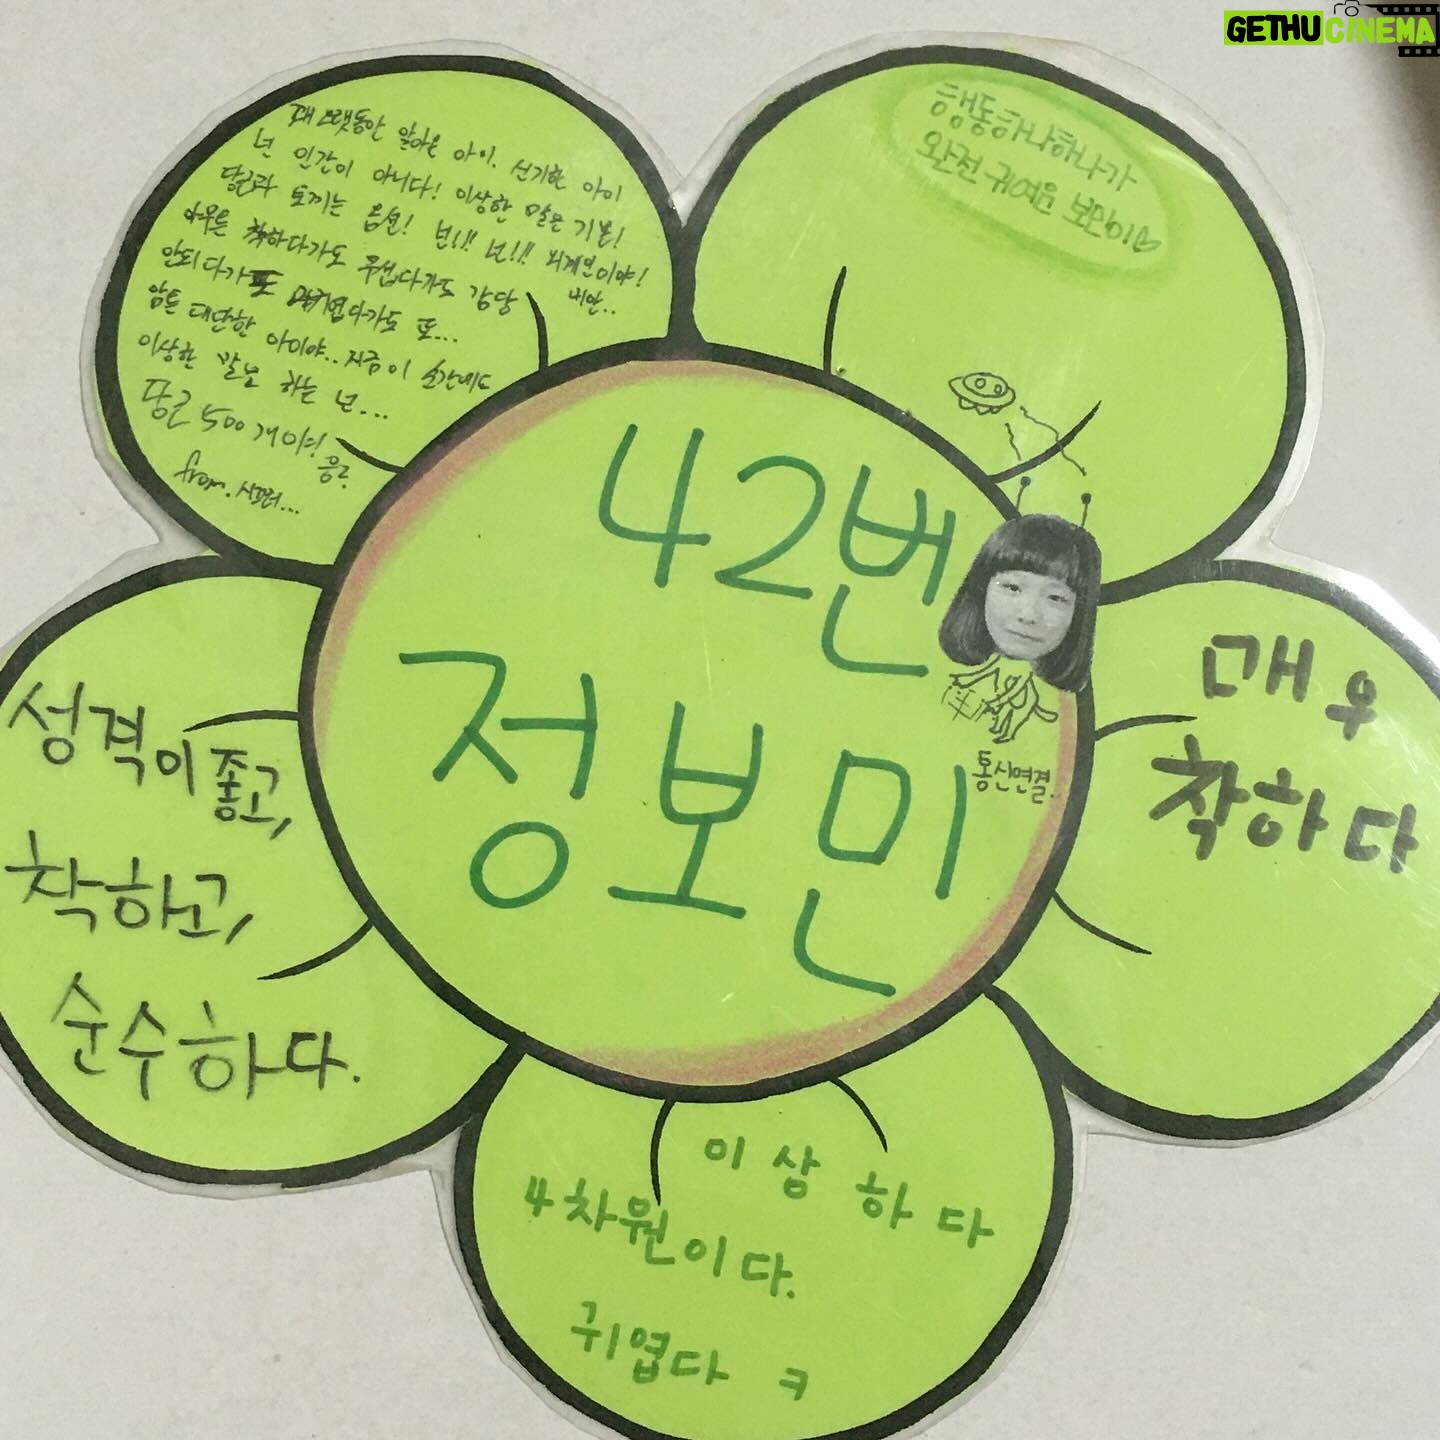 GETHUCINEMA
꽤 오랫동안 알아온 아이. 신기한 아이
넌 인간이 아니다! 이상한 말은 기본!
당근과 토끼는 옵션! 넌!!! 넌!!! 외계인이야!
아무튼 착하다가도 무섭다가도 감당
미안..
안되다가도 귀엽다가도 또...
암튼 대단한 아이야.. 지금 이 순간에도
이상한 말만 하는 넌...
당근 500개야!
from.
행동하나하나가
완전 귀여운 보민이♡
42번
정보민
통신연결.
매우
착하다
성격이 좋고,
착하고,
순수하다.
이상하다
4차원이다.
귀엽다 ㅋ